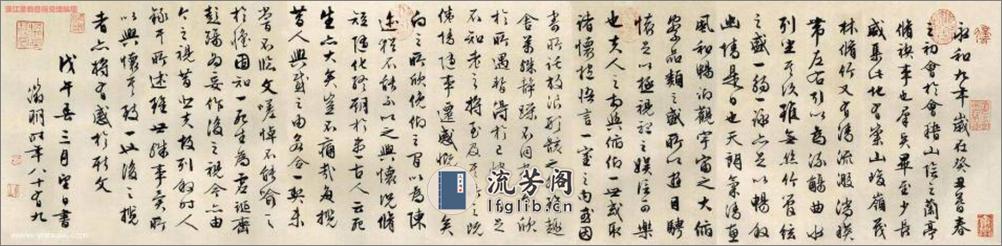 永和九年歲在癸丑暮春
之初會於會稽山陰之蘭亭
脩禊事也羣賢畢至少長
咸集此地有崇山峻嶺茂
林脩竹又有清流激湍映
帶左右引以為流觴曲水
列坐其次雖無絲竹管弦
之盛一觴一詠亦足以暢敘
幽情是日也天朗氣清惠
風和暢仰觀宇宙之大俯
察品類之盛所以遊目騁
懷足以極視聽之娛信可樂
也夫人之相與俯仰一世或取
諸懷抱悟言一室之內或因
寄所託放浪形骸之外雖趣
舍萬殊靜躁不同當其欣
於所遇暫得於己
不知老之將至及其所之既
倦情隨事遷感慨矣
向之所欣俛仰之間以為陳
迹猶不能不以之興懷況脩
短隨化終期於盡古人云死
生亦大矣豈不痛哉每攬
昔人興感之由若合一契未
嘗不臨文嗟悼不能喻之
於懷固知一死生為虛誕齊
彭殤為妄作後之視今亦由
今之視昔悲夫故列敘時人
錄其所述雖世殊事異所
以興懷其致一也後之攬
者亦將有感於斯文
戊午春三月望日書
徵明時年八十有九
流芳阁
lfglib.com